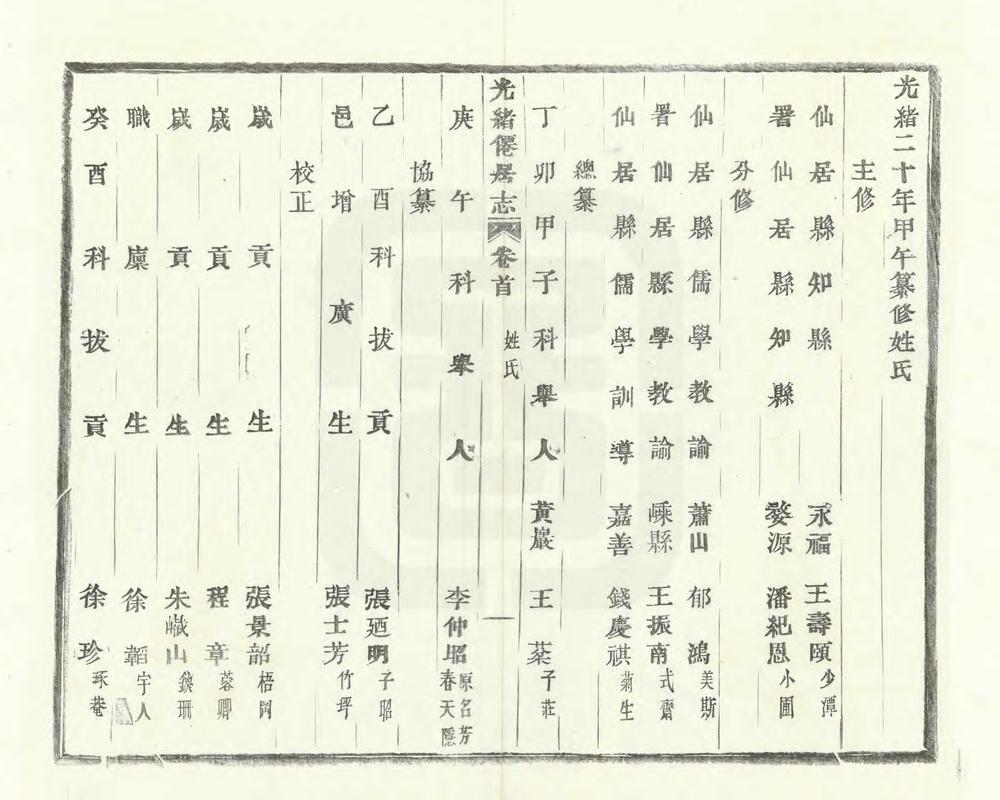 光緒二十年甲午纂修姓氏
主修
仙居縣知縣 永福 王壽頤 少潭
署仙居縣知縣 婺源 潘紀恩 小圃
分修
仙居縣儒學教諭 蕭山 郁鴻 美斯
署仙居縣學教諭 嵊縣 王振南 式齋
仙居縣儒學訓導 嘉善 錢慶祺 菊生
總纂
丁卯甲子科舉人 黃巖 王棻 子莊
光緒僊居志 卷首 姓氏 一
庚午科舉人 李仲昭 原名芳春天隱
協纂
乙酉科拔貢 張廼明 子昭
邑增廣生 張士芳 竹坪
校正
歲貢生 張景韶 梧岡
歲貢生 程章 蓉卿
歲貢生 朱巇山 鏡珊
職廩生 徐韜 宇人
癸酉科拔貢 徐珍 琢菴